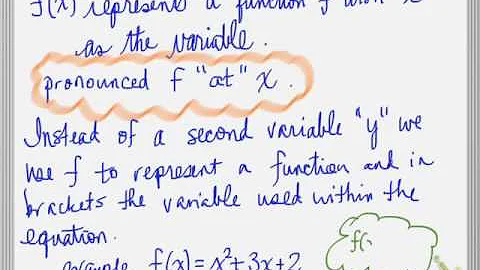 f(x) represents a function f with x
as the variable.
pronounced f "at" x.
Instead of a second variable "y" we
use f to represent a function and in
brackets the variable used within the
equation.
example f(x) = x²+3x+2
f(